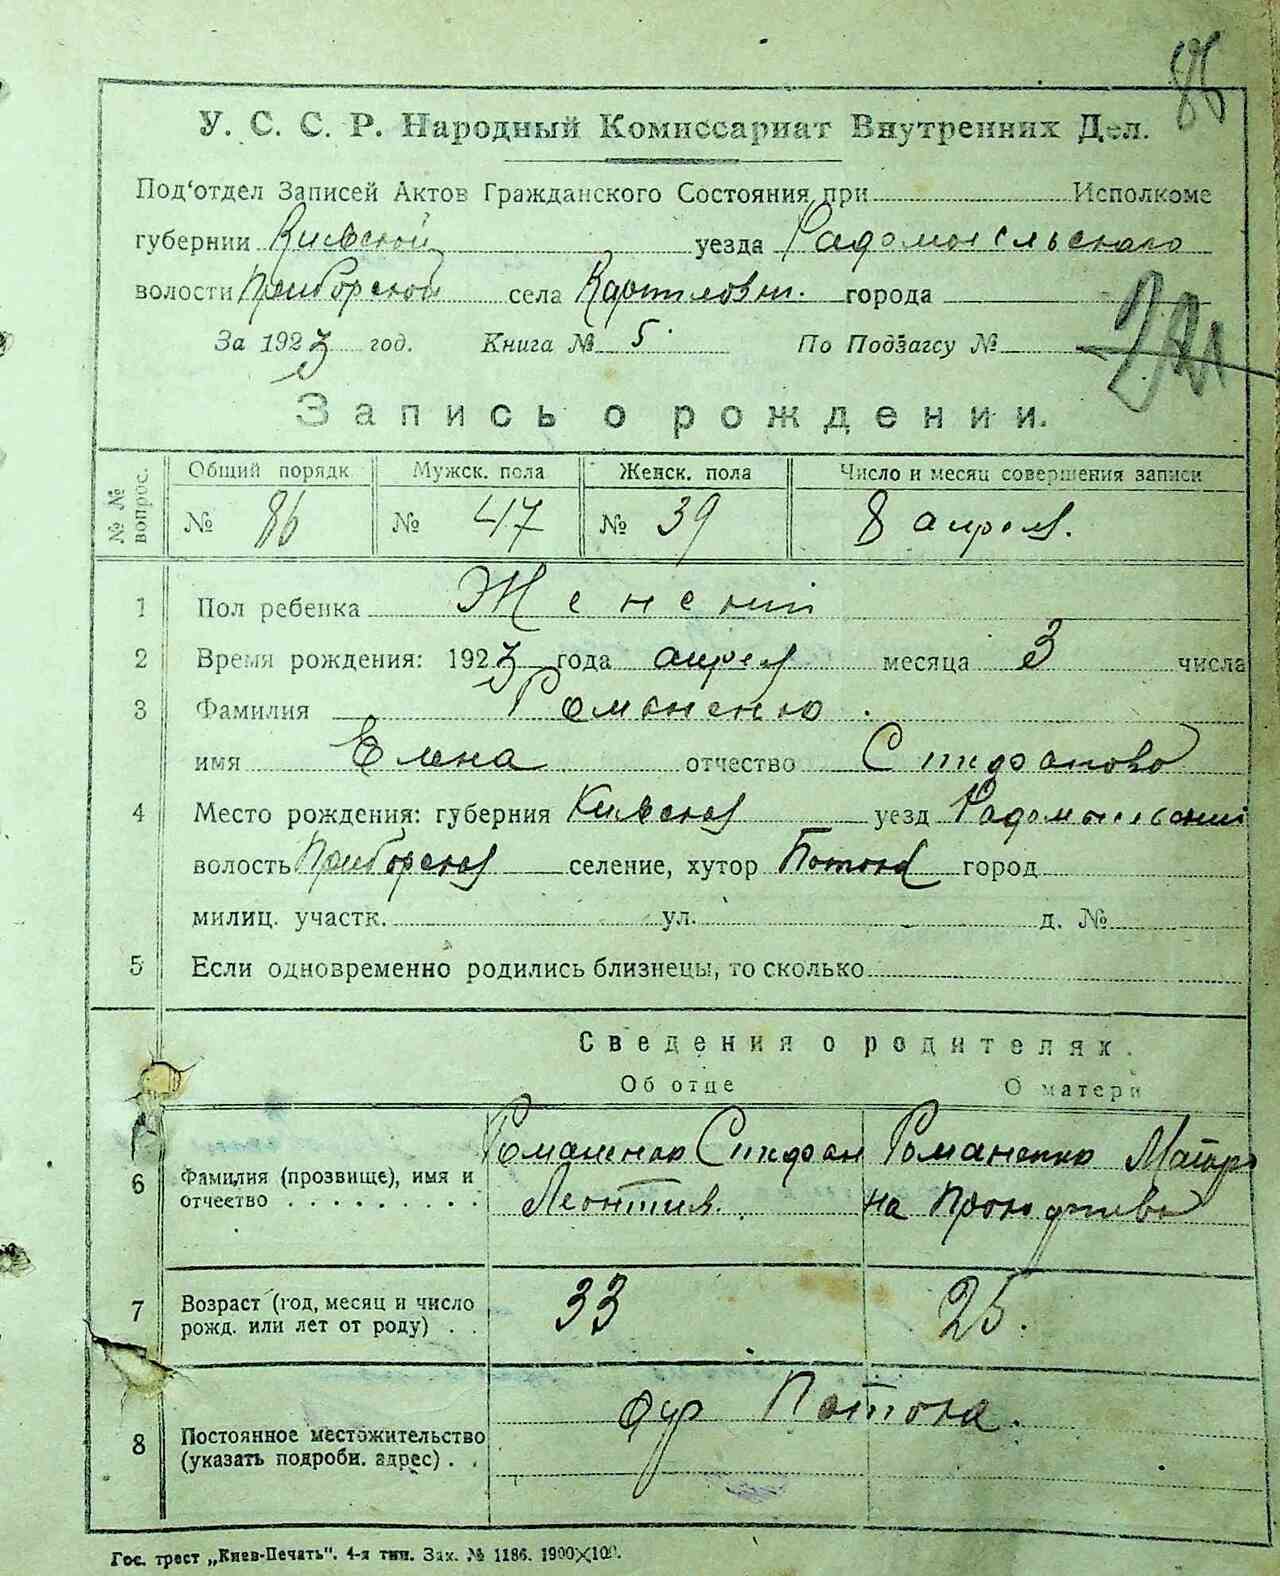 86
У. С. С. Р. Народный Комиссариат Внутренних Дел.
Под'отдел Записей Актов Гражданского Состояния при Исполкоме
губернии Киевской уезда Радомысльского
волости Приборской села Карпиловки. города
За 1923 год. Книга № 5 По Подзагсу №
Запись о рождении.
№ № вопрос. Общий порядк Мужск. пола Женск. пола Число и месяц совершения записи
№ 86 № 47 № 39 8 апреля.
1 Пол ребенка Женский
2 Время рождения: 1923 года апреля месяца 3 числа
3 Фамилия Романенко
имя Елена отчество Стифанова
4 Место рождения: губерния Киевская уезд Радомысльский
волость Приборская селение, хутор Потока город
милиц. участк. ул. д. №
5 Если одновременно родились близнецы, то сколько
Сведения о родителях.
Об отце О матери
6 Фамилия (прозвище), имя и Романенко Стифан Романенко Матро
отчество Леонтив. на Прокофиева
7 Возраст (год, месяц и число 33 25.
рожд. или лет от роду)
8 Постоянное местожительство Потока.
(указать подробн. адрес)
Гос. трест „Киев-Печать". 4-я тип. Зак. № 1186. 1900×100.